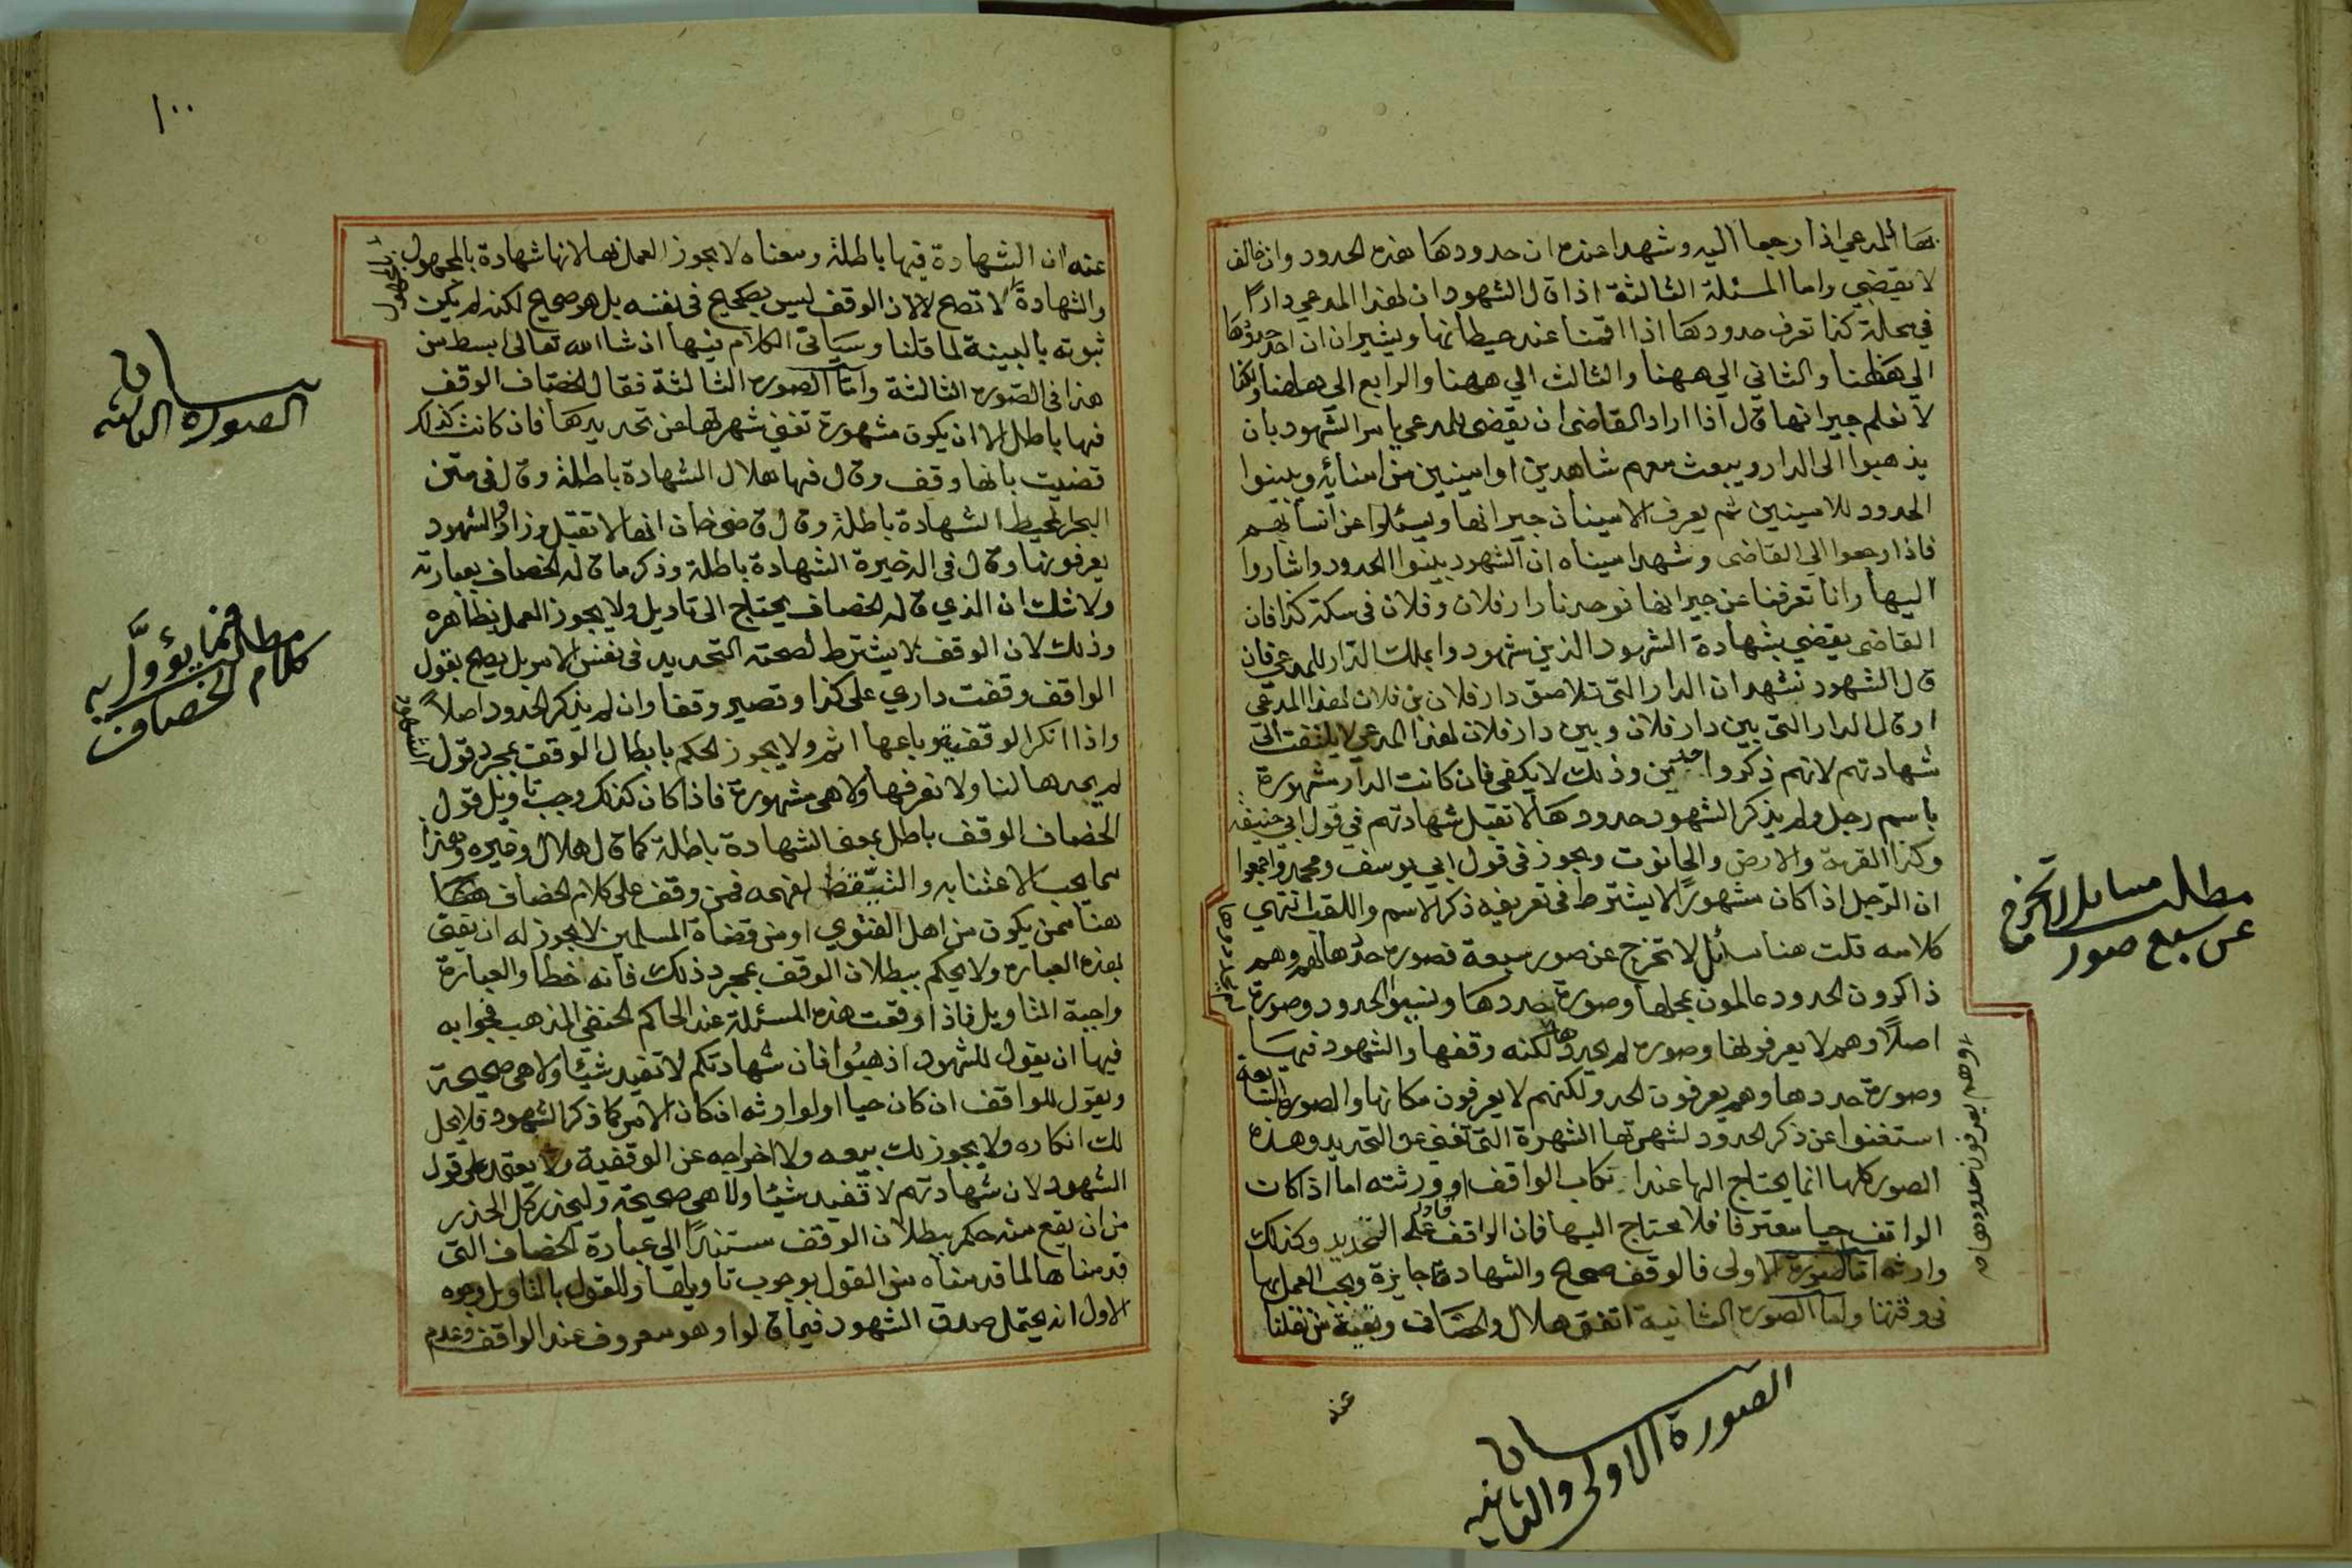 بها المدعي اذا رجعا اليه وشهدا عنده ان حدودها هذه الحدود وان خالف
لا يقضي واما المسئلة الثالثة اذا قال الشهود ان لهذا المدعي دارًا
في محلة كذا تعرف حدودها اذا اقمنا عند حيطانها ويشيران ان احد حدودها
الي ههنا والثاني الي ههنا والثالث الي ههنا والرابع الي ههنا ولكنا
لا نعلم جيرانها قال اذا اراد القاضي ان يقضي للمدعي يامر الشهود بان
يذهبوا الى الدار ويبعث معهم شاهدين او امينين من امنائه ويبينوا
الحدود للامينين ثم يعرف الامينان جيرانها ويسئلوا عن انسابهم
فاذا رجعوا الي القاضي وشهد اميناه ان الشهود بينوا الحدود واشاروا
اليها وانا تعرفنا عن جيرانها فوجدنا دار فلان وفلان في سكة كذا فان
القاضي يقضي بشهادة الشهود الذين شهدوا بملك الدار للمدعي فان
قال الشهود نشهد ان الدار التي تلاصق دار فلان بن فلان لهذا المدعي
او قال الدار التي بين دار فلان وبين دار فلان لهذا المدعي لا يلتفت الى
شهادتهم لانهم ذكروا حدين وذلك لا يكفي فان كانت الدار مشهورة
باسم رجل ولم يذكر الشهود حدودها لا تقبل شهادتهم في قول ابي حنيفة
وكذا القرية والارض والحانوت ويجوز في قول ابي يوسف ومحمد واجمعوا
ان الرجل اذا كان مشهورًا لا يشترط في تعريفه ذكر الاسم واللقب انتهي
كلامه قلت هنا مسائل لا تخرج عن صور سبعة فصورة حددها لهم وهم
ذاكرون الحدود عالمون بمحلها وصورة حددها ونسوا الحدود وصورة لم يحددها
اصلًا وهم لا يعرفونها وصورة لم يحددها لكنه وقفها والشهود فيها
وصورة حددها وهم يعرفون الحد ولكنهم لا يعرفون مكانها والصورة السابعة
استغنوا عن ذكر الحدود لشهرتها الشهرة التي تغني عن التحديد وهذه
الصور كلها انما يحتاج اليها عند انكار الواقف او ورثته اما اذا كان
الواقف حيا معترفا فلا يحتاج اليها فان الواقف قادر على التحديد وكذلك
وارثه اما الصورة الاولى فالوقف صحيح والشهادة جايزة ويجب العمل بها
في وقتنا واما الصورة الثانية اتفق هلال والخصاف وبقية من نقلنا
عنه
وهم يعرفون حدودها
مطلب مسايل لا تخرج
عن سبع صور
بيان
الصورة الاولى والثانية
١٠٠
عنه ان الشهادة فيها باطلة ومعناه لا يجوز العمل بها لانها شهادة بالمجهول
والشهادة بالمجهول لا تصح لا لان الوقف ليس بصحيح في نفسه بل هو صحيح لكنه لم يكن
ثبوته بالبينة لما قلنا وسياتي الكلام فيها ان شا الله تعالى ابسط من
هذا في الصورة الثالثة واما الصورة الثالثة فقال الخصاف الوقف
فيها باطل الا ان يكون مشهورة تغني شهرتها عن تحديدها فان كانت كذلك
قضيت بانها وقف وقال فيها هلال الشهادة باطلة وقال في متن
البحر المحيط الشهادة باطلة وقال قاضي خان انها لا تقبل وزاد والشهود
يعرفونها وقال في الذخيرة الشهادة باطلة وذكر ما قاله الخصاف بعبارته
ولا شك ان الذي قاله الخصاف يحتاج الى تاويل ولا يجوز العمل بظاهره
وذلك لان الوقف لا يشترط لصحته التحديد في نفس الامر بل يصح بقول
الواقف وقفت داري على كذا وتصير وقفا وان لم يذكر الحدود اصلًا
واذا انكر الوقفية وباعها اثم ولا يجوز الحكم بابطال الوقف بمجرد قول الشهود
لم يحدها لنا ولا نعرفها ولا هي مشهورة فاذا كان كذلك وجب تاويل قول
الخصاف الوقف باطل بمعنى الشهادة باطلة كما قال هلال وغيره وهذا
مما يجب الاعتنا به والتيقظ لفهمه فمن وقف على كلام الخصاف
هنا ممن يكون من اهل الفتوي او من قضاة المسلمين لا يجوز له ان يفتي
بهذه العبارة ولا يحكم ببطلان الوقف بمجرد ذلك فانه خطأ والعبارة
واجبة التاويل فاذا وقعت هذه المسئلة عند الحاكم الحنفي المذهب فجوابه
فيها ان يقول للشهود اذهبوا فان شهادتكم لا تفيد شيئا ولا هي صحيحة
ويقول للواقف ان كان حيا او لوارثه ان كان الامر كما ذكر الشهود فلا يحل
لك انكاره ولا يجوز لك بيعه ولا اخراجه عن الوقفية ولا يعتمد على قول
الشهود لان شهادتهم لا تفيد شيئا ولا هي صحيحة وليحذر كل الحذر
من ان يقع منه حكم ببطلان الوقف مستندًا الي عبارة الخصاف التي
قدمناها لما قدمناه من القول بوجوب تاويلها وللقول بالتاويل وجوه
الاول انه يحتمل صدق الشهود فيما قالوا وهو معروف عند الواقف وعدم
بيان
الصورة الثالثة
مطلب فيما يؤوَّل به
كلام الخصاف